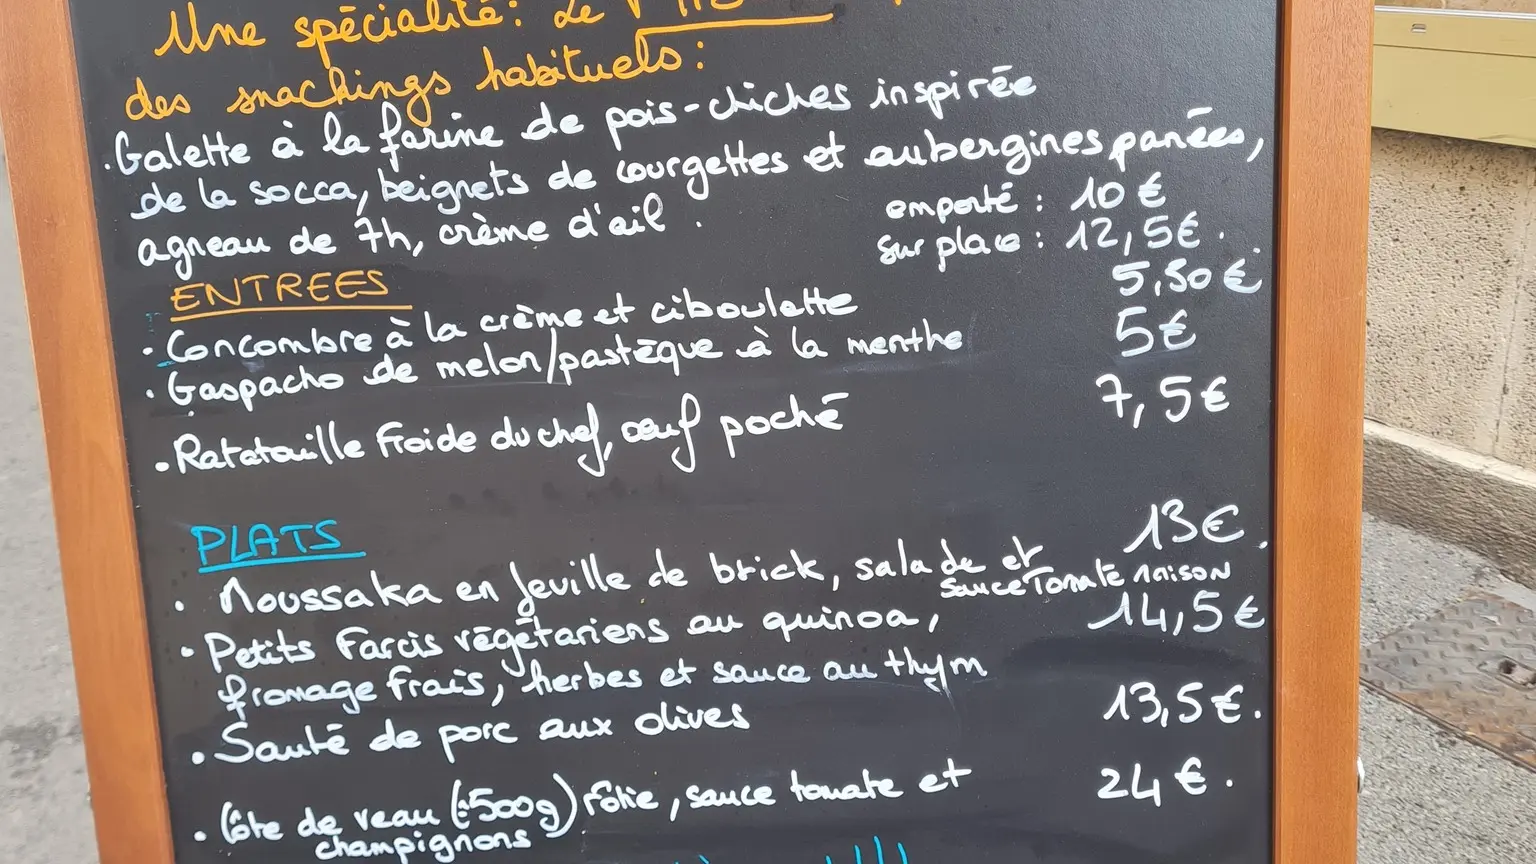 Une spécialité: Le
des snackings habituels:
. Galette à la farine de pois-chiches inspirée
de la socca, beignets de courgettes et aubergines panées,
agneau de 7h, crème d'ail.
emporté : 10 €
sur place : 12,5€.
ENTREES
. Concombre à la crème et ciboulette 5,50 €
. Gaspacho de melon/pastèque à la menthe 5€
. Ratatouille froide du chef, oeuf poché 7,5€
PLATS
. Moussaka en feuille de brick, salade et 13€.
sauce Tomate maison
. Petits Farcis végétariens au quinoa, 14,5€
fromage frais, herbes et sauce au thym
. Sauté de porc aux olives 13,5€.
. Côte de veau (±500g) rôtie, sauce tomate et 24€.
champignons